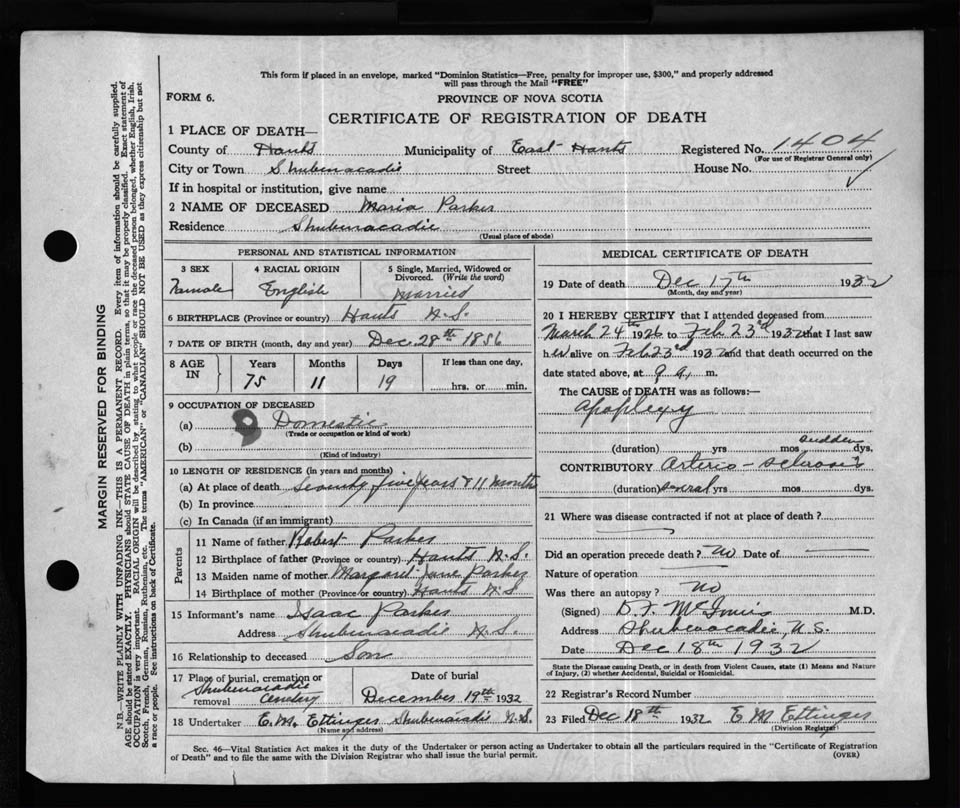 This form if placed in an envelope, marked "Dominion Statistics—Free, penalty for improper use, $300," and properly addressed
will pass through the Mail "FREE"
FORM 6.
PROVINCE OF NOVA SCOTIA
CERTIFICATE OF REGISTRATION OF DEATH
1 PLACE OF DEATH—
County of Hants Municipality of East Hants Registered No. 1404
(For use of Registrar General only)
City or Town Shubenacadie Street House No.
If in hospital or institution, give name
2 NAME OF DECEASED Maria Parker
Residence Shubenacadie
(Usual place of abode)
PERSONAL AND STATISTICAL INFORMATION
3 SEX 4 RACIAL ORIGIN 5 Single, Married, Widowed or
Divorced. (Write the word)
Female English Married
6 BIRTHPLACE (Province or country) Hants N.S.
7 DATE OF BIRTH (month, day and year) Dec. 28th 1856
8 AGE IN Years Months Days If less than one day,
75 11 19 hrs. or min.
9 OCCUPATION OF DECEASED
(a) Domestic
(Trade or occupation or kind of work)
(b)
(Kind of industry)
10 LENGTH OF RESIDENCE (in years and months)
(a) At place of death Seventy five years & 11 months
(b) In province
(c) In Canada (if an immigrant)
Parents
11 Name of father Robert Parker
12 Birthplace of father (Province or country) Hants N.S.
13 Maiden name of mother Margaret Jane Parker
14 Birthplace of mother (Province or country) Hants N.S
15 Informant's name Isaac Parker
Address Shubenacadie N.S.
16 Relationship to deceased Son
17 Place of burial, cremation or removal Date of burial
Shubenacadie Cemetery December 19th 1932
18 Undertaker E. M. Ettinger Shubenacadie N.S.
(Name and address)
MEDICAL CERTIFICATE OF DEATH
19 Date of death Dec 17th 1932
(Month, day and year)
20 I HEREBY CERTIFY that I attended deceased from
March 24th 1926 to Feb 23rd 1932 that I last saw
her alive on Feb 23rd 1932 and that death occurred on the
date stated above, at 9 a. m.
The CAUSE of DEATH was as follows:
Apoplexy
sudden
(duration) yrs mos dys.
CONTRIBUTORY Arterio-sclerosis
(duration) several yrs mos dys.
21 Where was disease contracted if not at place of death?
Did an operation precede death? no Date of
Nature of operation
Was there an autopsy? No
(Signed) D. F. M.D.
Address Shubenacadie, N.S.
Date Dec 18th 1932
State the Disease causing Death, or in death from Violent Causes, state (1) Means and Nature
of Injury, (2) whether Accidental, Suicidal or Homicidal.
22 Registrar's Record Number
23 Filed Dec 18th 1932 E M Ettinger
(Division Registrar)
Sec. 46—Vital Statistics Act makes it the duty of the Undertaker or person acting as Undertaker to obtain all the particulars required in the "Certificate of Registration
of Death" and to file the same with the Division Registrar who shall issue the burial permit. (OVER)
MARGIN RESERVED FOR BINDING
N.B.—WRITE PLAINLY WITH UNFADING INK—THIS IS A PERMANENT RECORD. Every item of information should be carefully supplied.
AGE should be stated EXACTLY. PHYSICIANS should STATE CAUSE OF DEATH in plain terms, so that it may be properly classified. Exact statement of
OCCUPATION is very important. RACIAL ORIGIN will be described by stating to what people or race the deceased person belonged, whether English, Irish,
Scotch, French, German, Russian, Ruthenian, etc. The terms "AMERICAN" or "CANADIAN" SHOULD NOT BE USED as they express citizenship but not
a race or people. See instructions on back of Certificate.